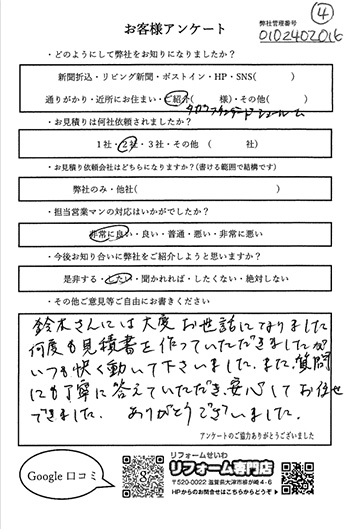 ④
お客様アンケート
弊社管理番号
0102402016
・どのようにして弊社をお知りになりましたか？
新聞折込・リビング新聞・ポストイン・HP・SNS(　　　)
通りがかり・近所にお住まい・ご紹介(　　　様)・その他(　　　)
タカラスタンダードショールーム
・お見積りは何社依頼されましたか？
1社・2社・3社・その他　(　　　社)
・お見積り依頼会社はどちらになりますか？(書ける範囲で結構です)
弊社のみ・他社(　　　)
・担当営業マンの対応はいかがでしたか？
非常に良い・良い・普通・悪い・非常に悪い
・今後お知り合いに弊社をご紹介しようと思いますか？
是非する・したい・聞かれれば・したくない・絶対しない
・その他ご意見等ご自由にお書きください
鈴木さんには大変お世話になりました
何度も見積書を作っていただきましたが
いつも快く動いて下さいました。また、質問
にも丁寧に答えていただき、安心してお任せ
できました。ありがとうございました。
アンケートのご協力ありがとうございました
Google 口コミ
リフォームせいわ
リフォーム専門店
〒520-0022 滋賀県大津市柳が崎4-6
HPからのお問合せはこちらからどうぞ